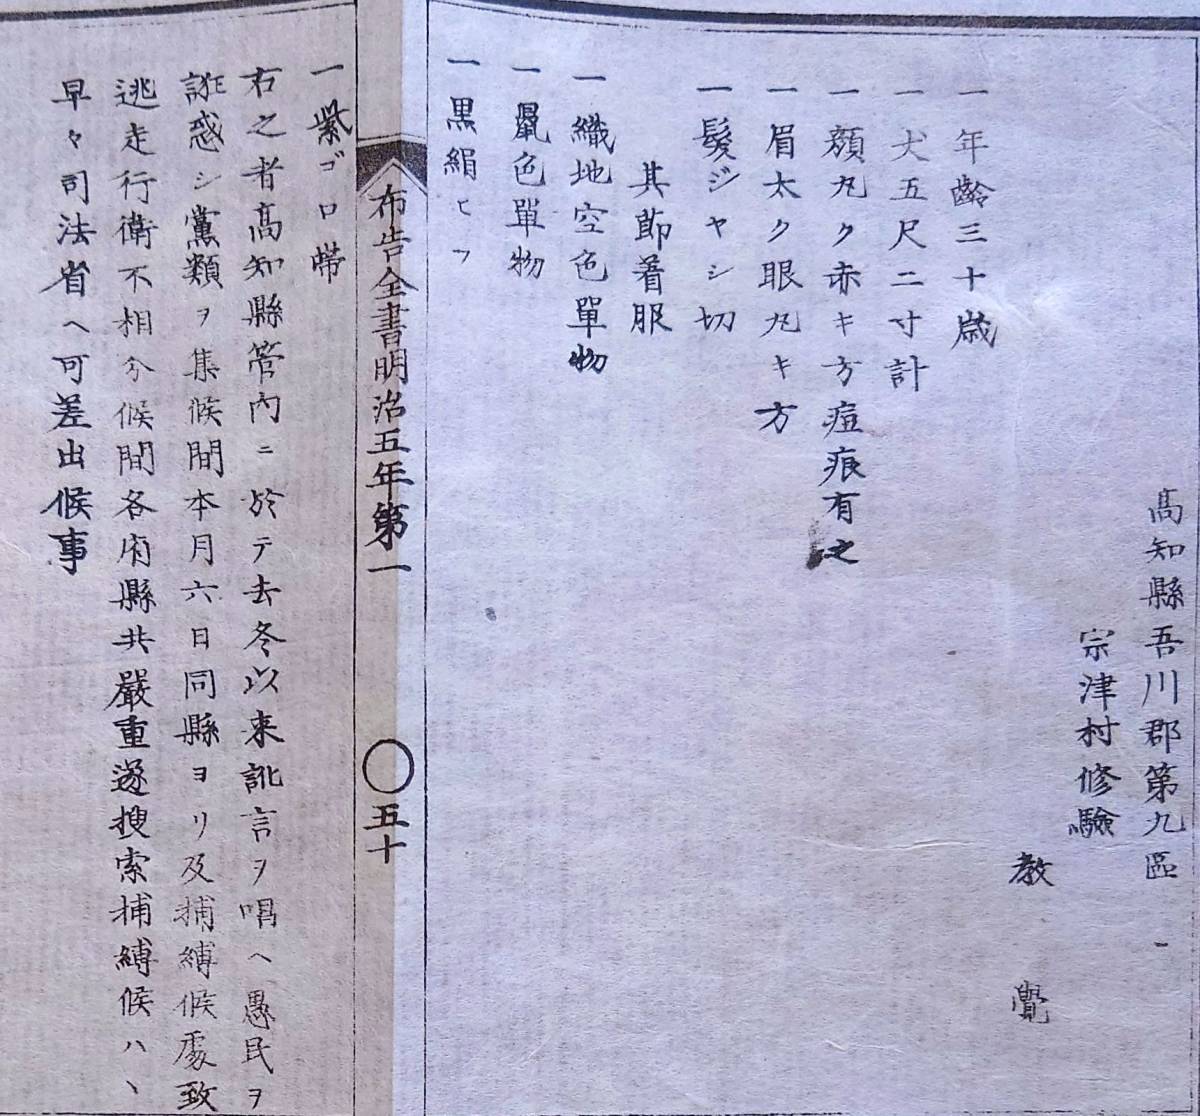 高知縣吾川郡第九區
宗津村修驗
教覺
一年齡三十歳
一丈五尺二寸計
一顔丸ク赤キ方痘痕有之
一眉太ク眼丸キ方
一髮ジヤシ切
其節着服
一織地空色單物
一鼠色單物
一黒絹ヒフ
布告全書明治五年第一
〇五十
一紫ゴロ帶
右之者高知縣管內ニ於テ去冬以來訛言ヲ唱ヘ愚民ヲ
誑惑シ黨類ヲ集候間本月六日同縣ヨリ及捕縛候處致
逃走行衛不相分候間各府縣共嚴重遂搜索捕縛候ハヽ
早々司法省ヘ可差出候事